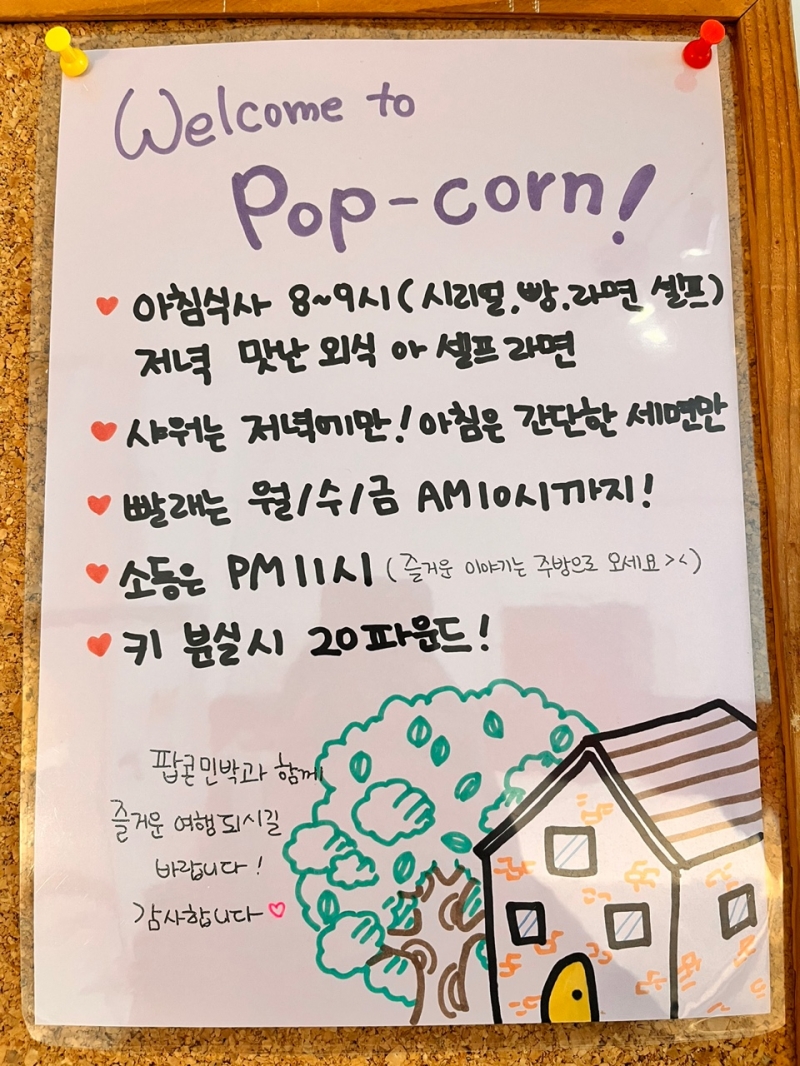 Welcome to
Pop-corn!
아침식사 8~9시 (시리얼, 빵, 라면 셀프)
저녁 맛난 외식 아 셀프 라면
샤워는 저녁에만! 아침은 간단한 세면만
빨래는 월/수/금 AM 10시까지!
소등은 PM 11시 (즐거운 이야기는 주방으로 오세요 ><)
키 분실시 20파운드!
팝콘민박과 함께
즐거운 여행되시길
바랍니다!
감사합니다♡